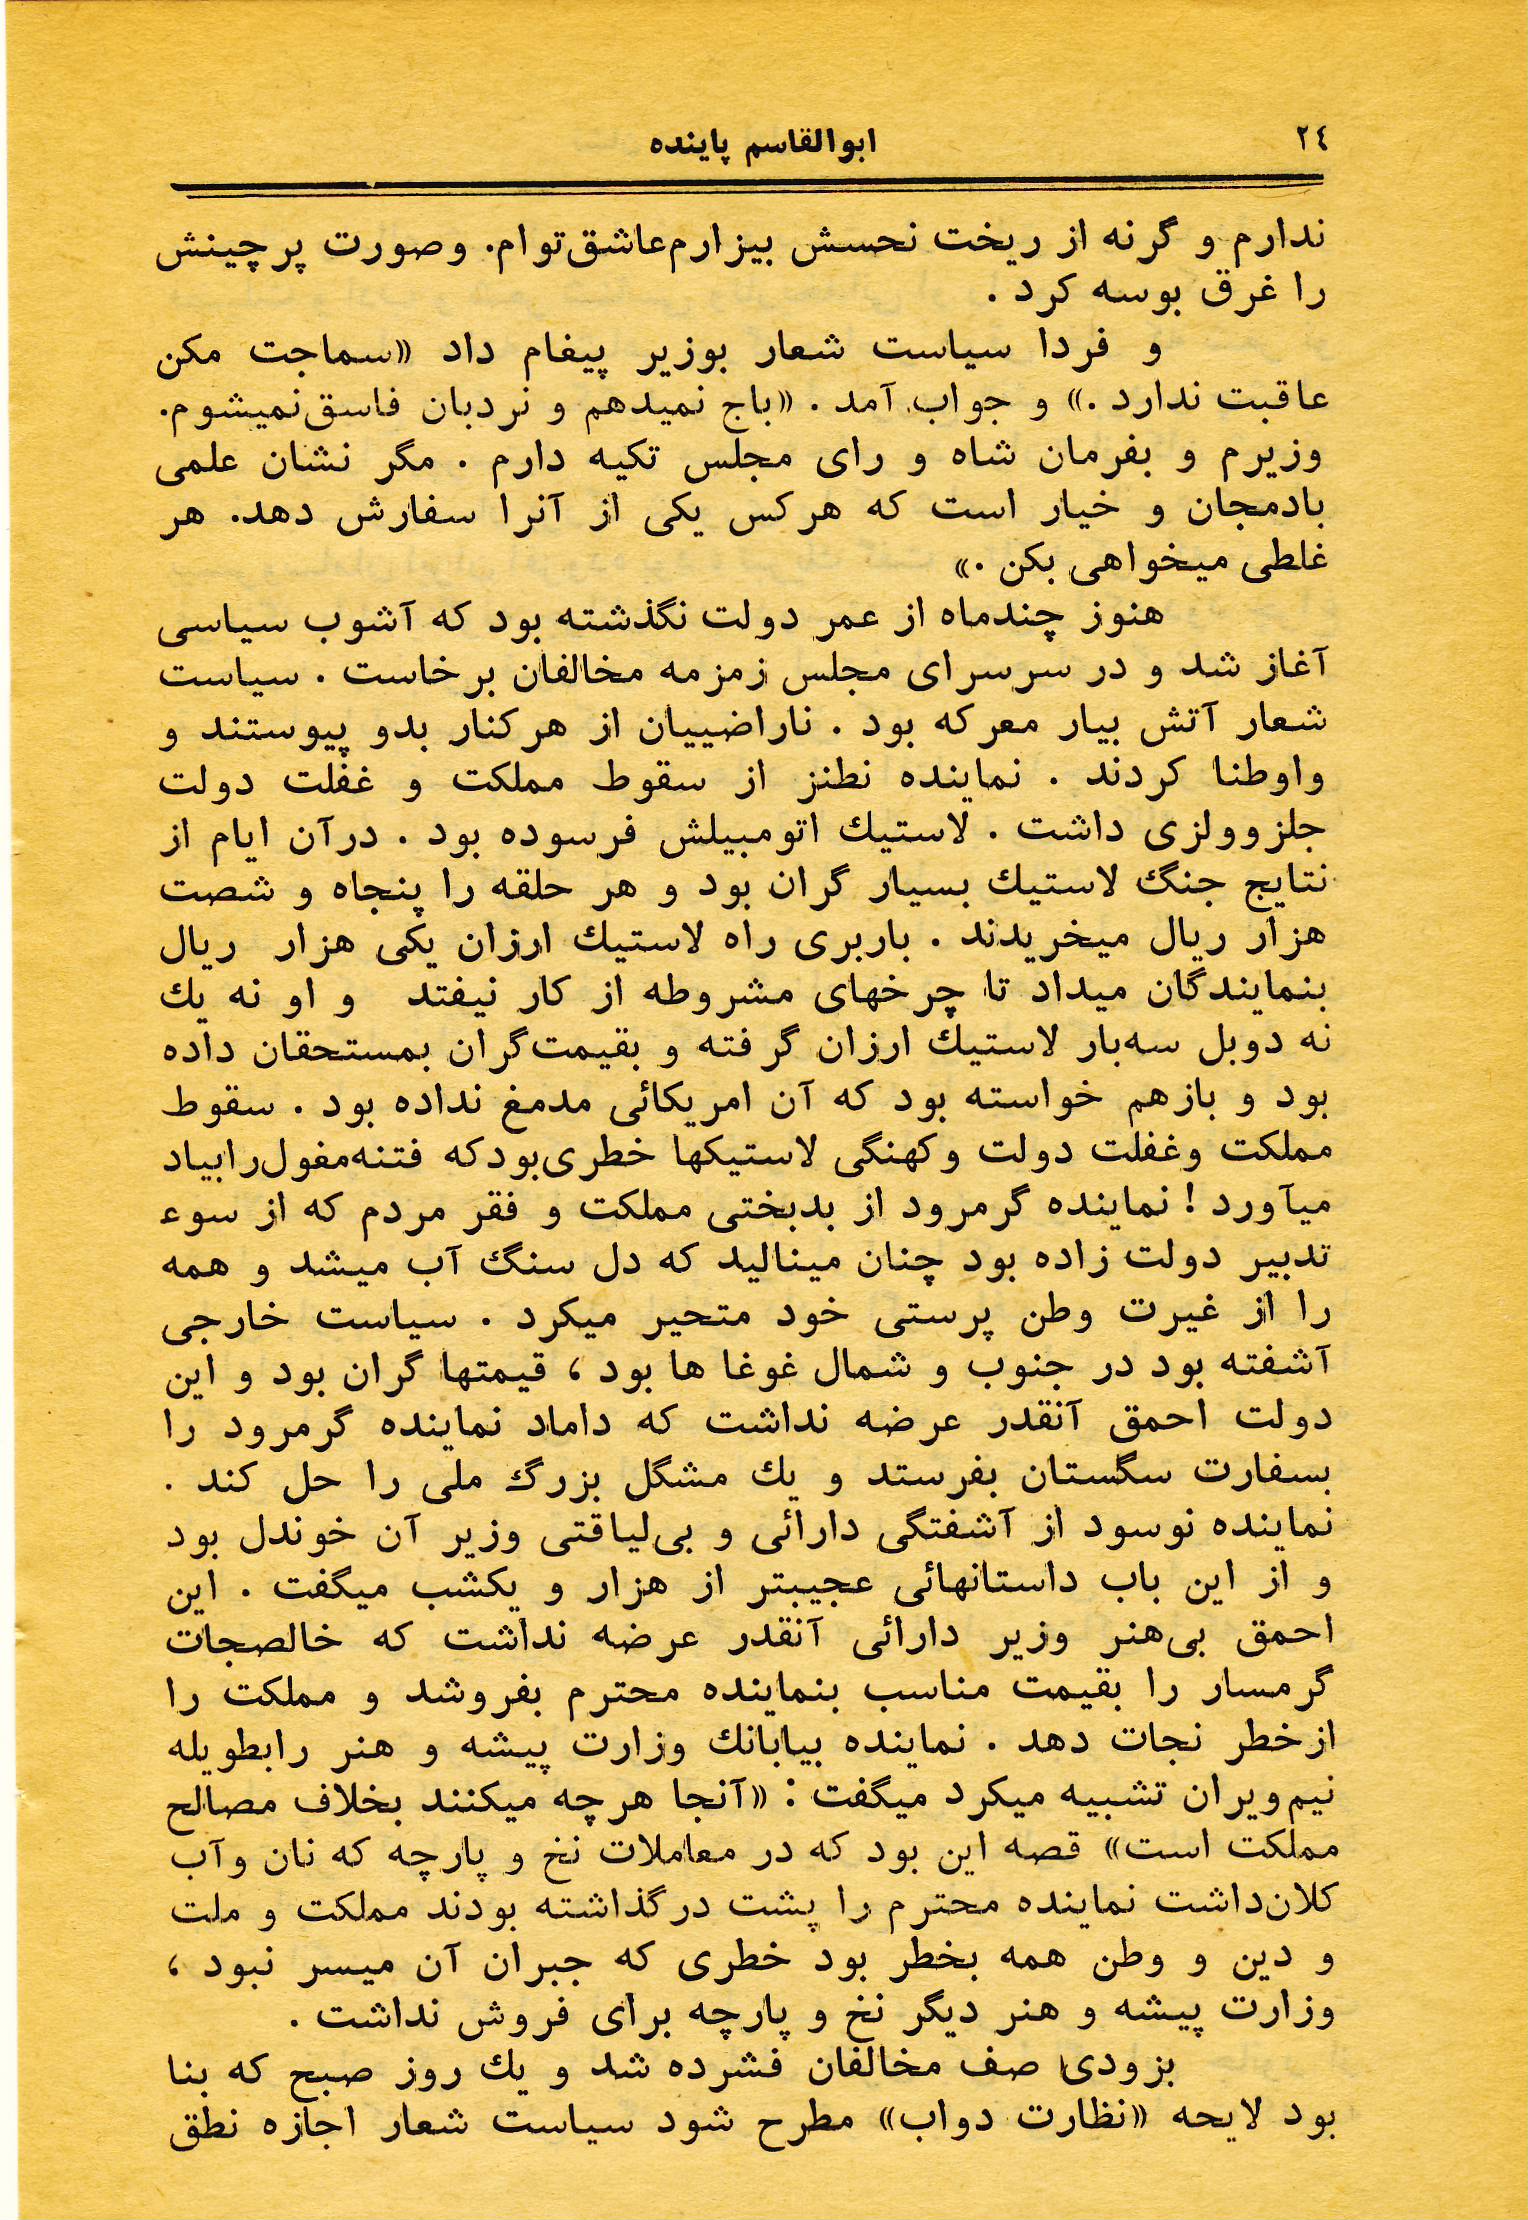 ۲٤
ابوالقاسم پاینده
ندارم و گرنه از ریخت نحسش بیزارم‌عاشق‌توام. وصورت پرچینش
را غرق بوسه کرد .
و فردا سیاست شعار بوزیر پیغام داد «سماجت مکن
عاقبت ندارد .» و جواب آمد . «باج نمیدهم و نردبان فاسق‌نمیشوم.
وزیرم و بفرمان شاه و رای مجلس تکیه دارم . مگر نشان علمی
بادمجان و خیار است که هرکس یکی از آنرا سفارش دهد. هر
غلطی میخواهی بکن .»
هنوز چندماه از عمر دولت نگذشته بود که آشوب سیاسی
آغاز شد و در سرسرای مجلس زمزمه مخالفان برخاست . سیاست
شعار آتش بیار معرکه بود . ناراضییان از هرکنار بدو پیوستند و
واوطنا کردند . نماینده نطنز از سقوط مملکت و غفلت دولت
جلزوولزی داشت . لاستیك اتومبیلش فرسوده بود . درآن ایام از
نتایج جنگ لاستیك بسیار گران بود و هر حلقه را پنجاه و شصت
هزار ریال میخریدند . باربری راه لاستیك ارزان یکی هزار ریال
بنمایندگان میداد تا چرخهای مشروطه از کار نیفتد و او نه یك
نه دوبل سه‌بار لاستیك ارزان گرفته و بقیمت‌گران بمستحقان داده
بود و بازهم خواسته بود که آن امریکائی مدمغ نداده بود . سقوط
مملکت وغفلت دولت وکهنگی لاستیکها خطری‌بودکه فتنه‌مغول‌رابیاد
میآورد ! نماینده گرمرود از بدبختی مملکت و فقر مردم که از سوء
تدبیر دولت زاده بود چنان مینالید که دل سنگ آب میشد و همه
را از غیرت وطن پرستی خود متحیر میکرد . سیاست خارجی
آشفته بود در جنوب و شمال غوغا ها بود ، قیمتها گران بود و این
دولت احمق آنقدر عرضه نداشت که داماد نماینده گرمرود را
بسفارت سگستان بفرستد و یك مشگل بزرگ ملی را حل کند .
نماینده نوسود از آشفتگی دارائی و بی‌لیاقتی وزیر آن خوندل بود
و از این باب داستانهائی عجیبتر از هزار و یکشب میگفت . این
احمق بی‌هنر وزیر دارائی آنقدر عرضه نداشت که خالصجات
گرمسار را بقیمت مناسب بنماینده محترم بفروشد و مملکت را
ازخطر نجات دهد . نماینده بیابانك وزارت پیشه و هنر رابطویله
نیم‌ویران تشبیه میکرد میگفت : «آنجا هرچه میکنند بخلاف مصالح
مملکت است» قصه این بود که در معاملات نخ و پارچه که نان وآب
کلان‌داشت نماینده محترم را پشت درگذاشته بودند مملکت و ملت
و دین و وطن همه بخطر بود خطری که جبران آن میسر نبود ،
وزارت پیشه و هنر دیگر نخ و پارچه برای فروش نداشت .
بزودی صف مخالفان فشرده شد و یك روز صبح که بنا
بود لایحه «نظارت دواب» مطرح شود سیاست شعار اجازه نطق